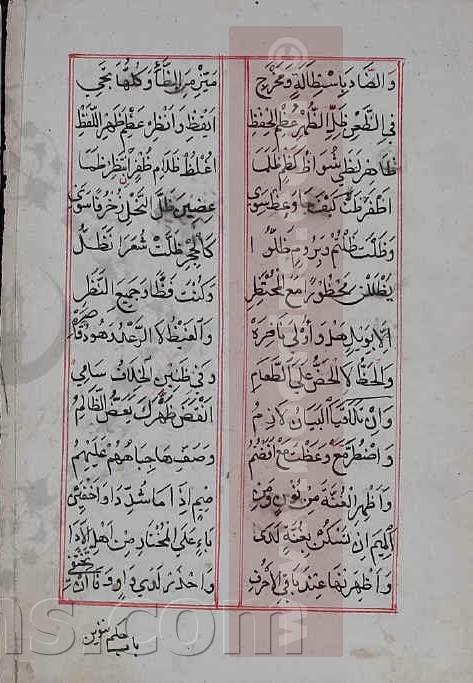 وَالضَّادَ بِاسْتِطَالَةٍ وَمَخْرَجِ مَيِّزْ مِنَ الظَّاءِ وَكُلُّهَا تَجِي
فِي الظَّعْنِ ظِلُّ الظُّهْرِ عُظْمُ الْحِفْظِ ايْقِظْ وَانْظُرْ عَظْمَ ظَهْرِ اللَّفْظِ
ظَاهِرْ لَظَى شُوَاظُ كَظْمٍ ظَلَمَا اغْلُظْ ظَلَامَ ظُفْرٍ انْتَظِرْ ظَمَا
اظْفَرَ ظَنًّا كَيْفَ جَا وَعِظْ سِوَى عِضِينَ ظَلَّ النَّحْلِ زُخْرُفًا سَوَى
وَظَلْتَ ظَلْتُمْ وَبِرُومٍ ظَلُّوا كَالْحِجْرِ ظَلَّتْ شُعَرَا نَظَلُّ
يَظْلَلْنَ مَحْظُورًا مَعَ الْمُحْتَظِرِ وَكُنْتَ فَظًّا وَجَمِيعِ النَّظَرِ
الا بِوَيْلٌ هَلْ وَأُولَى نَاضِرَهْ وَالْغَيْظُ لَا الرَّعْدُ وَهُودٌ قَاصِرَهْ
وَالْحَظُّ لَا الْحَضُّ عَلَى الطَّعَامِ وَفِي ظَنِينٍ الْخِلَافُ سَامِي
وَانْ تَلَاقَيَا الْبَيَانُ لَازِمُ انْقَضَ ظَهْرَكَ يَعَضُّ الظَّالِمُ
وَاضْطُرَّ مَعْ وَعَظْتَ مَعْ افَضْتُمُ وَصَفِّ هَا جِبَاهُهُمْ عَلَيْهِمُ
وَاظْهِرِ الْغُنَّةَ مِنْ نُونٍ وَمِنْ مِيمٍ اذَا مَا شُدِّدَا وَاخْفِيَنْ
الْمِيمَ انْ تَسْكُنْ بِغُنَّةٍ لَدَى بَاءٍ عَلَى الْمُخْتَارِ مِنْ اهْلِ الادَا
وَاظْهِرَنْهَا عِنْدَ بَاقِي الاحْرُفِ وَاحْذَرْ لَدَى وَاوٍ وَفَا انْ تَخْتَفِي
باب حكم تنوين
www.
ns.com